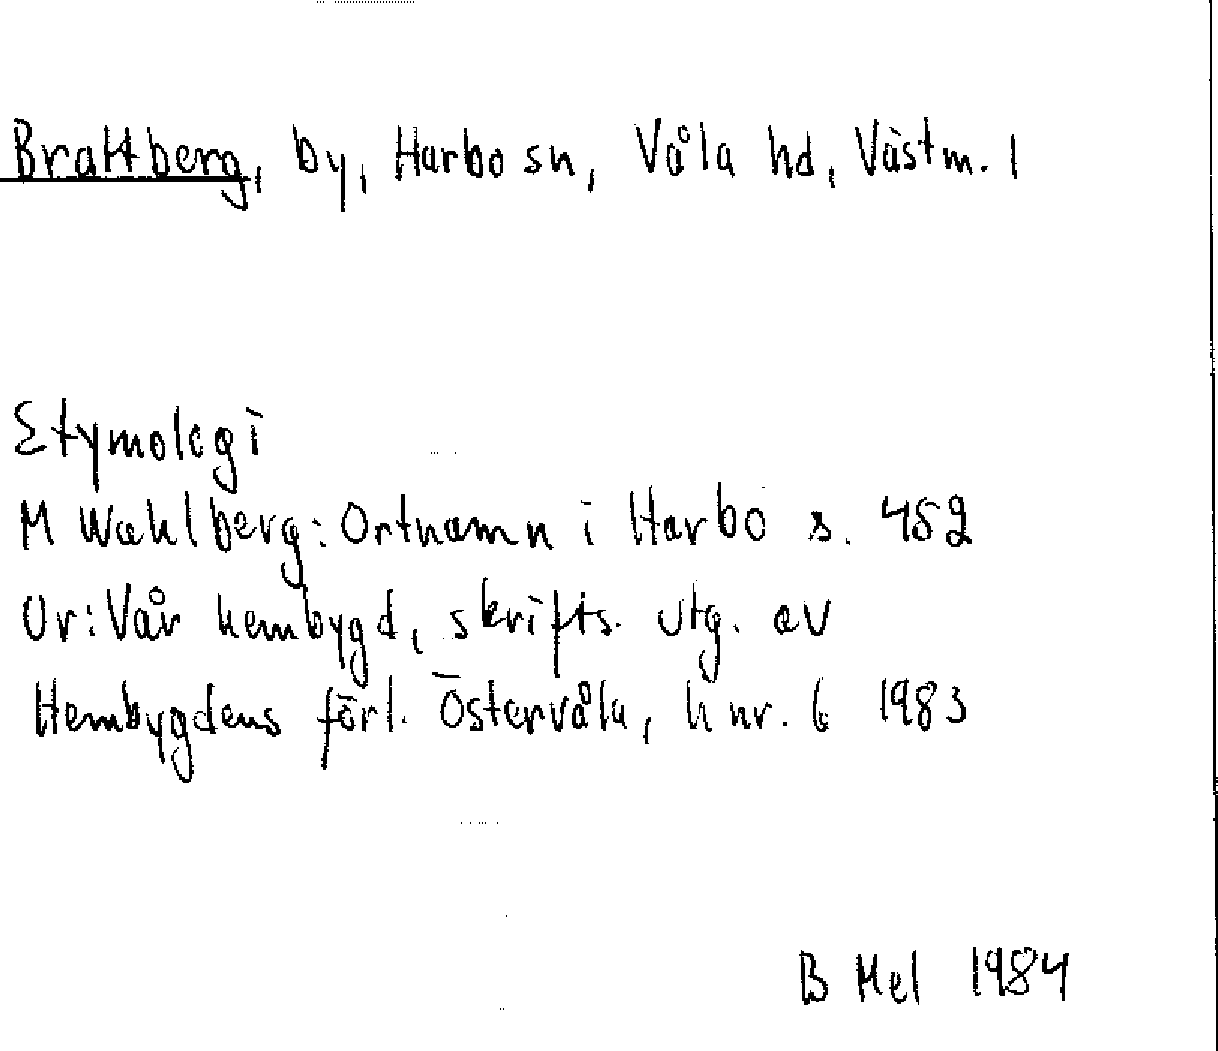 Brattberg, by, Harbo sn, Våla hd, Västm. l
Etymologi
M Wahlberg: Ortnamn i Harbo s. 452
Ur: Vår hembygd, skrifts. utg. av
Hembygdens förl. Östervåla, h nr. 6 1983
B Mel 1984